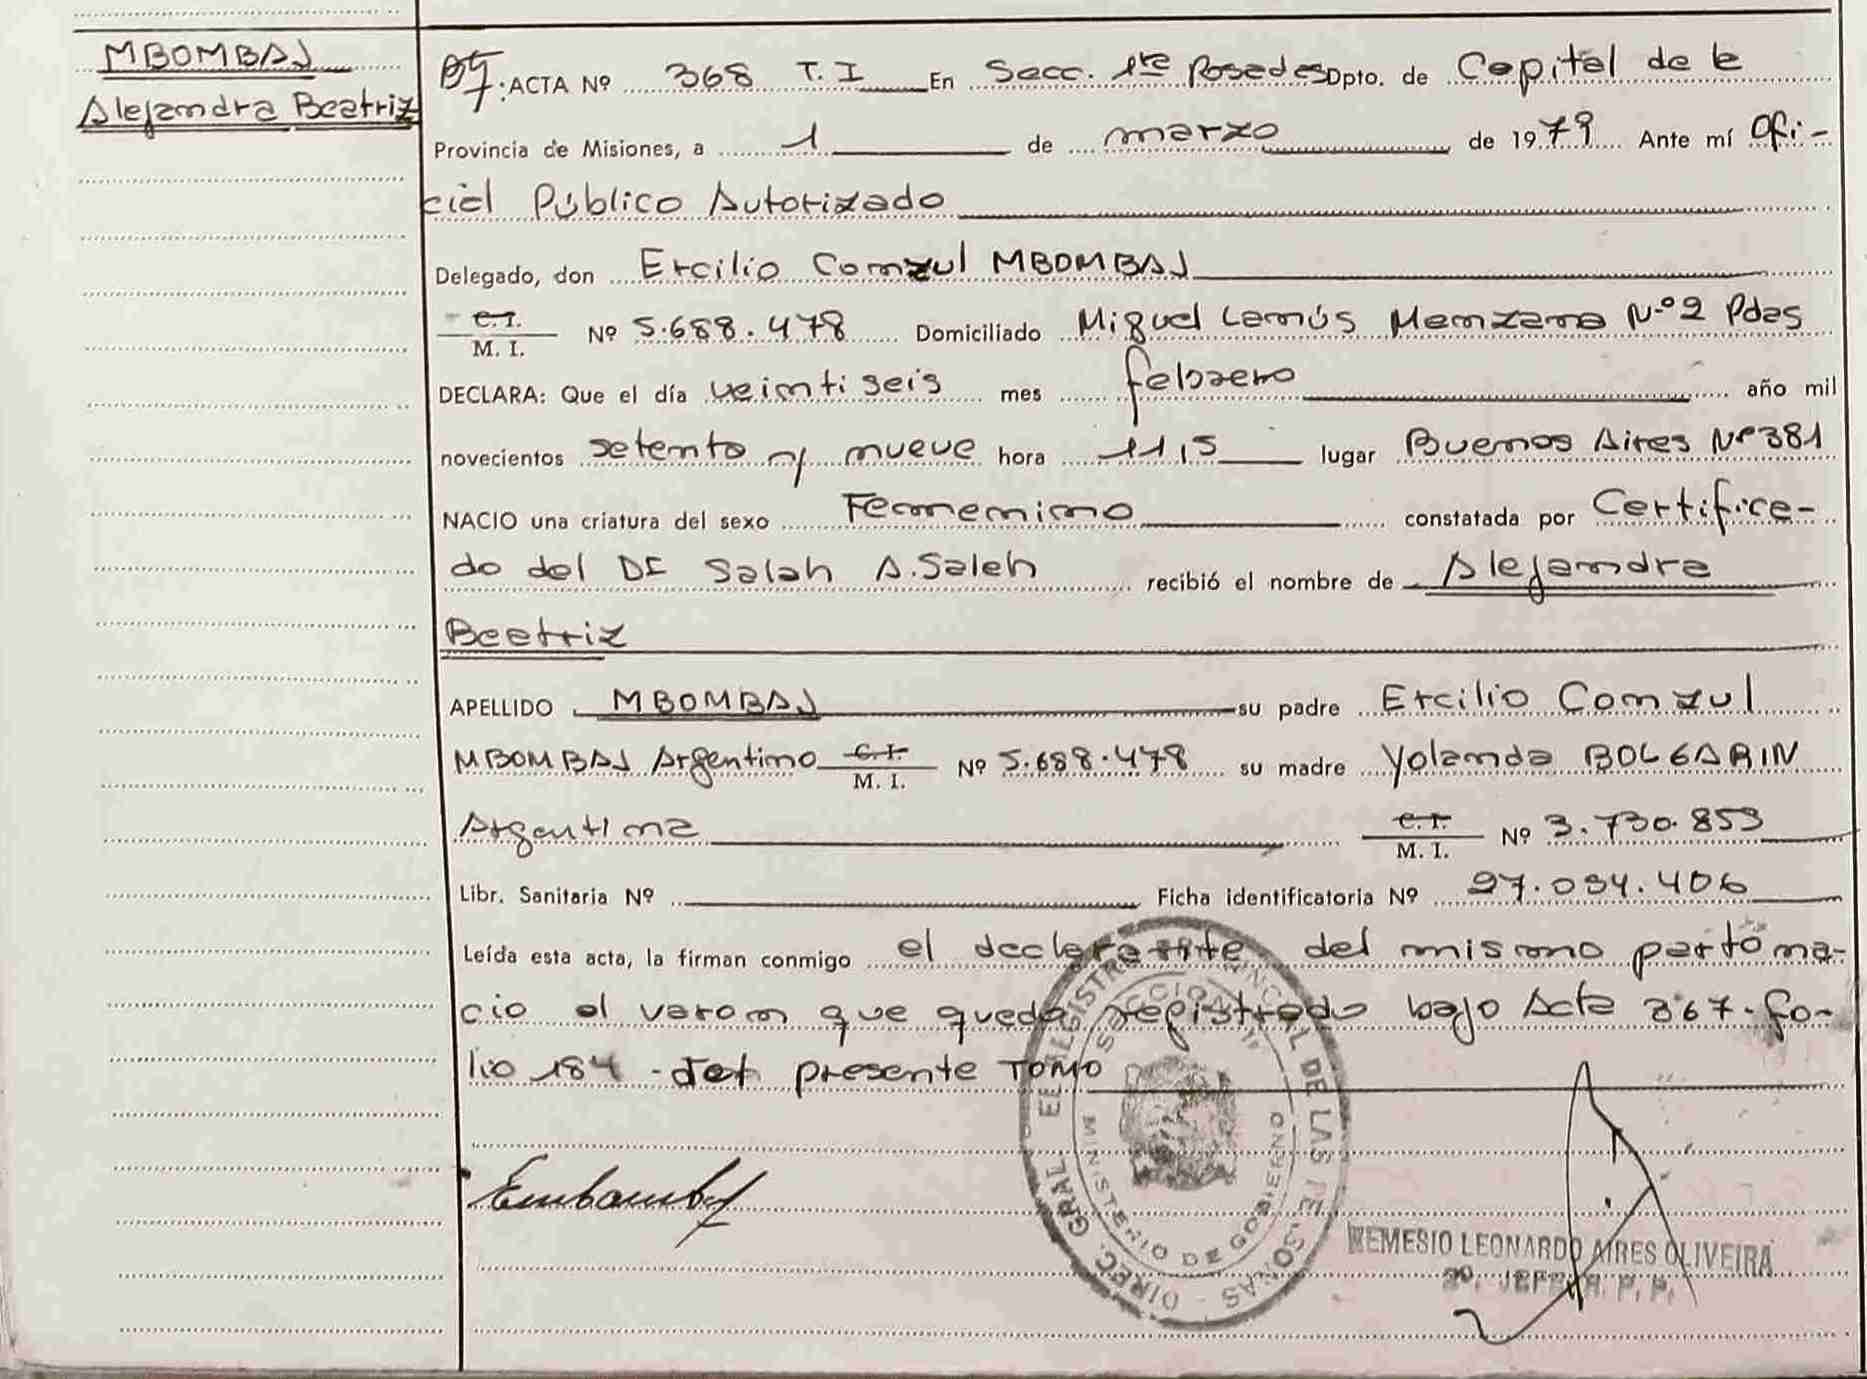 MBOMBAJ
Alejandra Beatriz
ACTA Nº 368 T. I En Secc. 1ra Posadas Dpto. de Capital de la
Provincia de Misiones, a 1 de marzo de 1979 Ante mí Ofi-
cial Público Autorizado
Delegado, don Ercilio Conzul MBOMBAJ
C.I.
M. I. Nº 5.688.478 Domiciliado Miguel Lanús Manzana Nº 2 Pdas
DECLARA: Que el día veintiseis mes febrero año mil
novecientos setenta y nueve hora 11,5 lugar Buenos Aires Nº 381
NACIO una criatura del sexo Femenino constatada por Certifica-
do del Dr Salah A. Saleh recibió el nombre de Alejandra
Beatriz
APELLIDO MBOMBAJ su padre Ercilio Conzul
MBOMBAJ Argentino C.I.
M. I. Nº 5.688.478 su madre Yolanda BOLGARIN
Argentina C.I.
M. I. Nº 3.730.853
Libr. Sanitaria Nº Ficha identificatoria Nº 27.034.406
Leída esta acta, la firman conmigo el declarante del mismo parto na-
cio el varon que queda registrado bajo Acta 367-fo-
lio 184 - del presente TOMO
DIREC. GRAL DE LAS PERSONAS
SECCION 1ª
MINISTERIO DE GOBIERNO
REMESIO LEONARDO AIRES OLIVEIRA
2º. JEFE R. P. P.